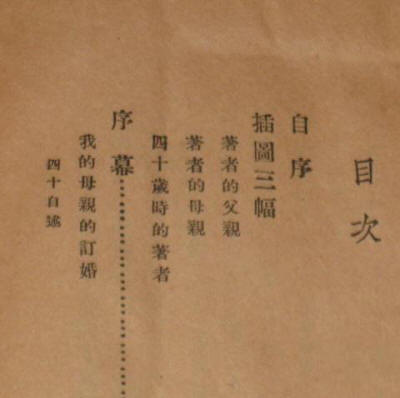 目次
自序
插圖三幅
著者的父親
著者的母親
四十歲時的著者
序幕……………………
我的母親的訂婚
四十自述